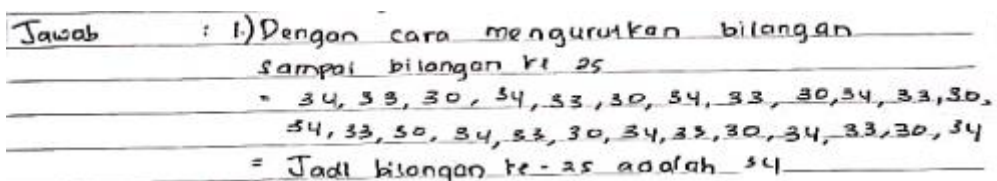 Jawab : 1.) Dengan cara mengurutkan bilangan
sampai bilangan ke 25
= 34, 33, 30, 34, 33, 30, 34, 33, 30, 34, 33, 30,
34, 33, 30, 34, 33, 30, 34, 33, 30, 34, 33, 30, 34
= Jadi bilangan ke-25 adalah 34